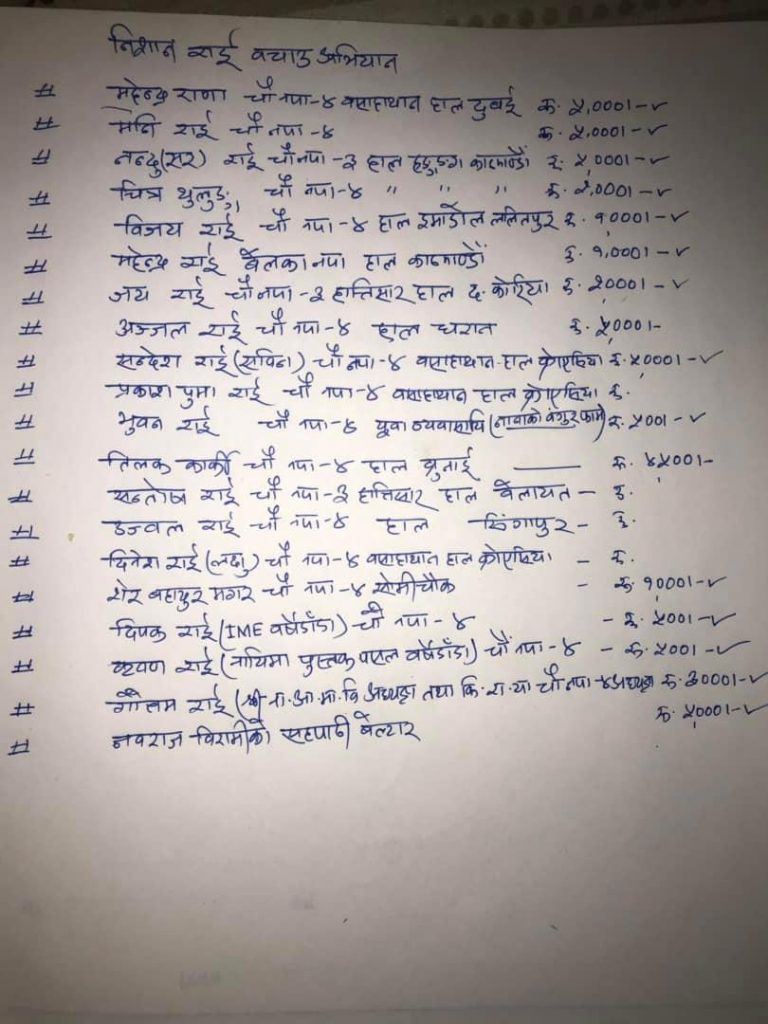 निशान राई बचाउ अभियान
# महेन्द्र राणा चौ नपा-४ बसाहाथान हाल दुबई रु. ५,000।-✓
# मनि राई चौ नपा-४ रु. ५,000।-✓
# नन्दु(सर) राई चौ नपा-३ हाल काठमाण्डौं रु. ५,000।-✓
# चित्र थुलुङ्ग चौ नपा-४ " " " रु. ५,000।-✓
# विजय राई चौ नपा-४ हाल इमाडोल ललितपुर रु. १,000।-✓
# महेन्द्र राई बेलका नपा हाल काठमाण्डौं रु. १,000।-✓
# जय राई चौ नपा-३ हात्तिसार हाल द. कोरिया रु. 000।-✓
# अञ्जल राई चौ नपा-४ हाल धरान रु. ५,000।-
# सन्देश राई (सविना) चौ नपा-४ बसाहाथान हाल क्रोएसिया रु. ५,000।-✓
# प्रकाश पुमा राई चौ नपा-४ बसाहाथान हाल क्रोएसिया रु.
# भुवन राई चौ नपा-४ युवा व्यवसायि (बंगुर फार्म) रु. ५00।-✓
# तिलक कार्की चौ नपा-४ हाल ब्रुनाई —— रु. 00।-
# सन्तोष राई चौ नपा-३ हात्तिसार हाल बेलायत - रु.
# उज्वल राई चौ नपा-४ हाल सिंगापुर - रु.
# दिनेश राई चौ नपा-४ बसाहाथान हाल क्रोएसिया - रु.
# शेर बहादुर मगर चौ नपा-४ सोमीचौक - रु. १०००।-✓
# दिपक राई (IME वसेडाँडा) चौ नपा-४ - रु. ५००।-✓
# राई (पुस्तक पसल) चौ नपा-४ - रु. ५००।-✓
# गौतम राई (श्री रा.आ.मा.वि अध्यक्ष तथा कि.रा.या चौ नपा-४ अध्यक्ष रु. ३०००।-✓
# नवराज विरामीको सहपाठी बेल्टार रु. ५०००।-✓